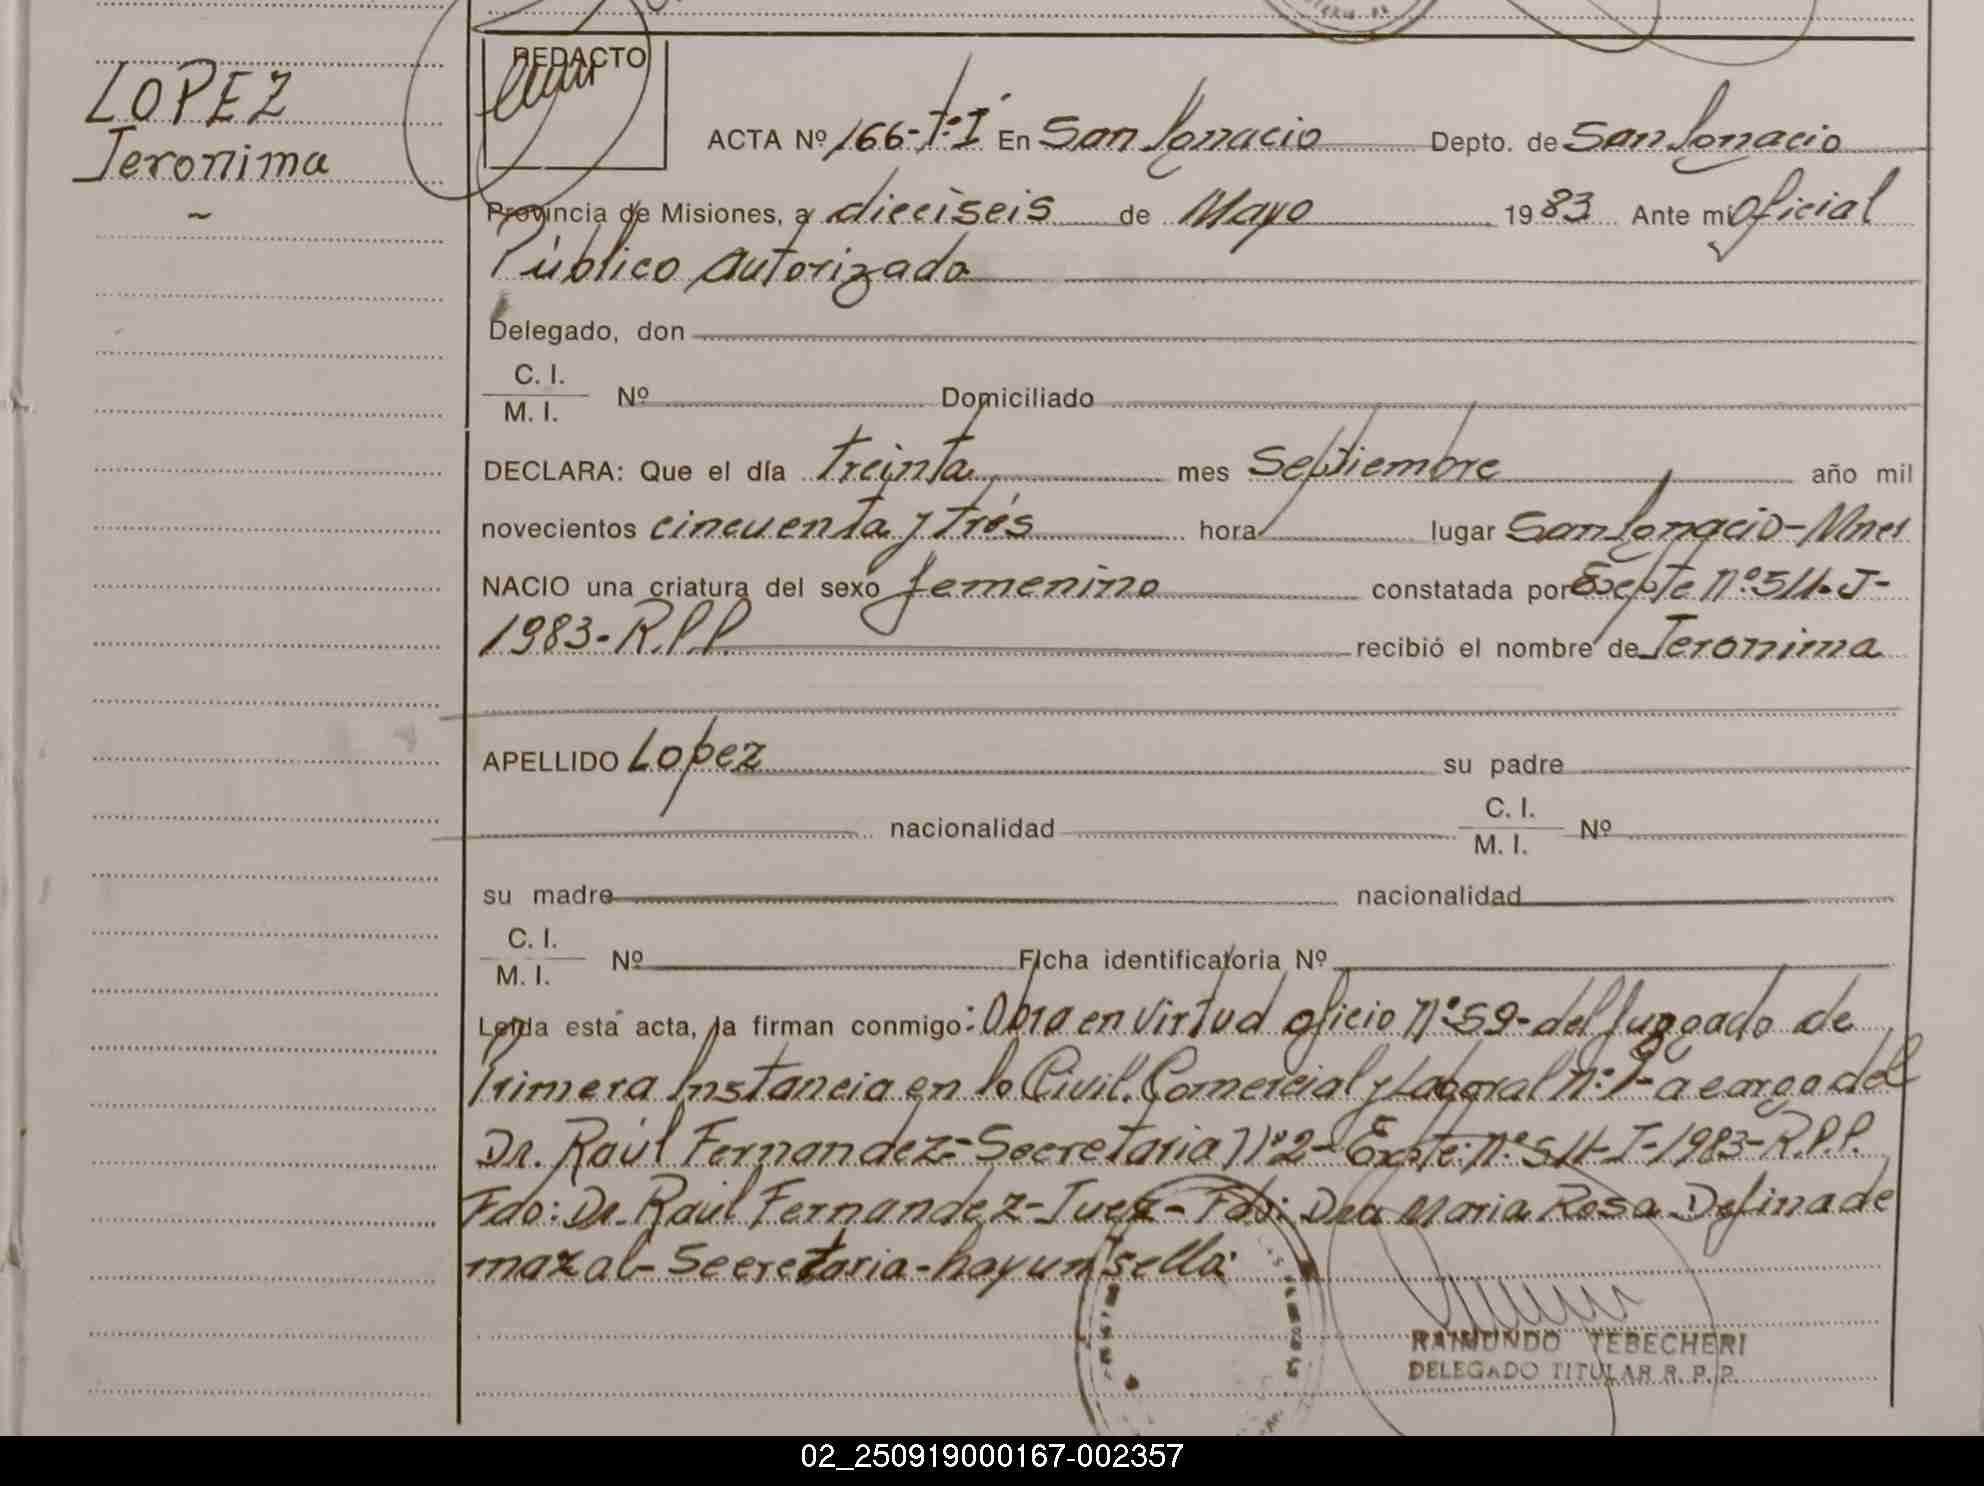 LOPEZ
Jeronima
REDACTO
ACTA Nº 166-Tº I En San Ignacio Depto. de San Ignacio
Provincia de Misiones, a dieciseis de Mayo 1983 Ante mi Oficial
Público Autorizado
Delegado, don
C. I.
M. I. Nº Domiciliado
DECLARA: Que el día treinta mes Septiembre año mil
novecientos cincuenta y trés hora lugar San Ignacio-Mnes
NACIO una criatura del sexo femenino constatada por Expte Nº 511-J-
1983-R.P.P. recibió el nombre de Jeronima
APELLIDO Lopez su padre
nacionalidad C. I.
M. I. Nº
su madre nacionalidad
C. I.
M. I. Nº Ficha identificatoria Nº
Leída esta acta, la firman conmigo: Obra en virtud oficio Nº 59-del Juzgado de
Primera Instancia en lo Civil. Comercial y Laboral Nº 1-a cargo del
Dr. Raúl Fernandez-Secretaria Nº 2-Expte: Nº 511-J-1983-R.P.P.
Fdo: Dr. Raúl Fernandez-Juez-Fdo: Dra Maria Rosa Defina de
mazal-Secretaria-hay un sello.
RAIMUNDO TEBECHERI
DELEGADO TITULAR R. P. P.
02_250919000167-002357